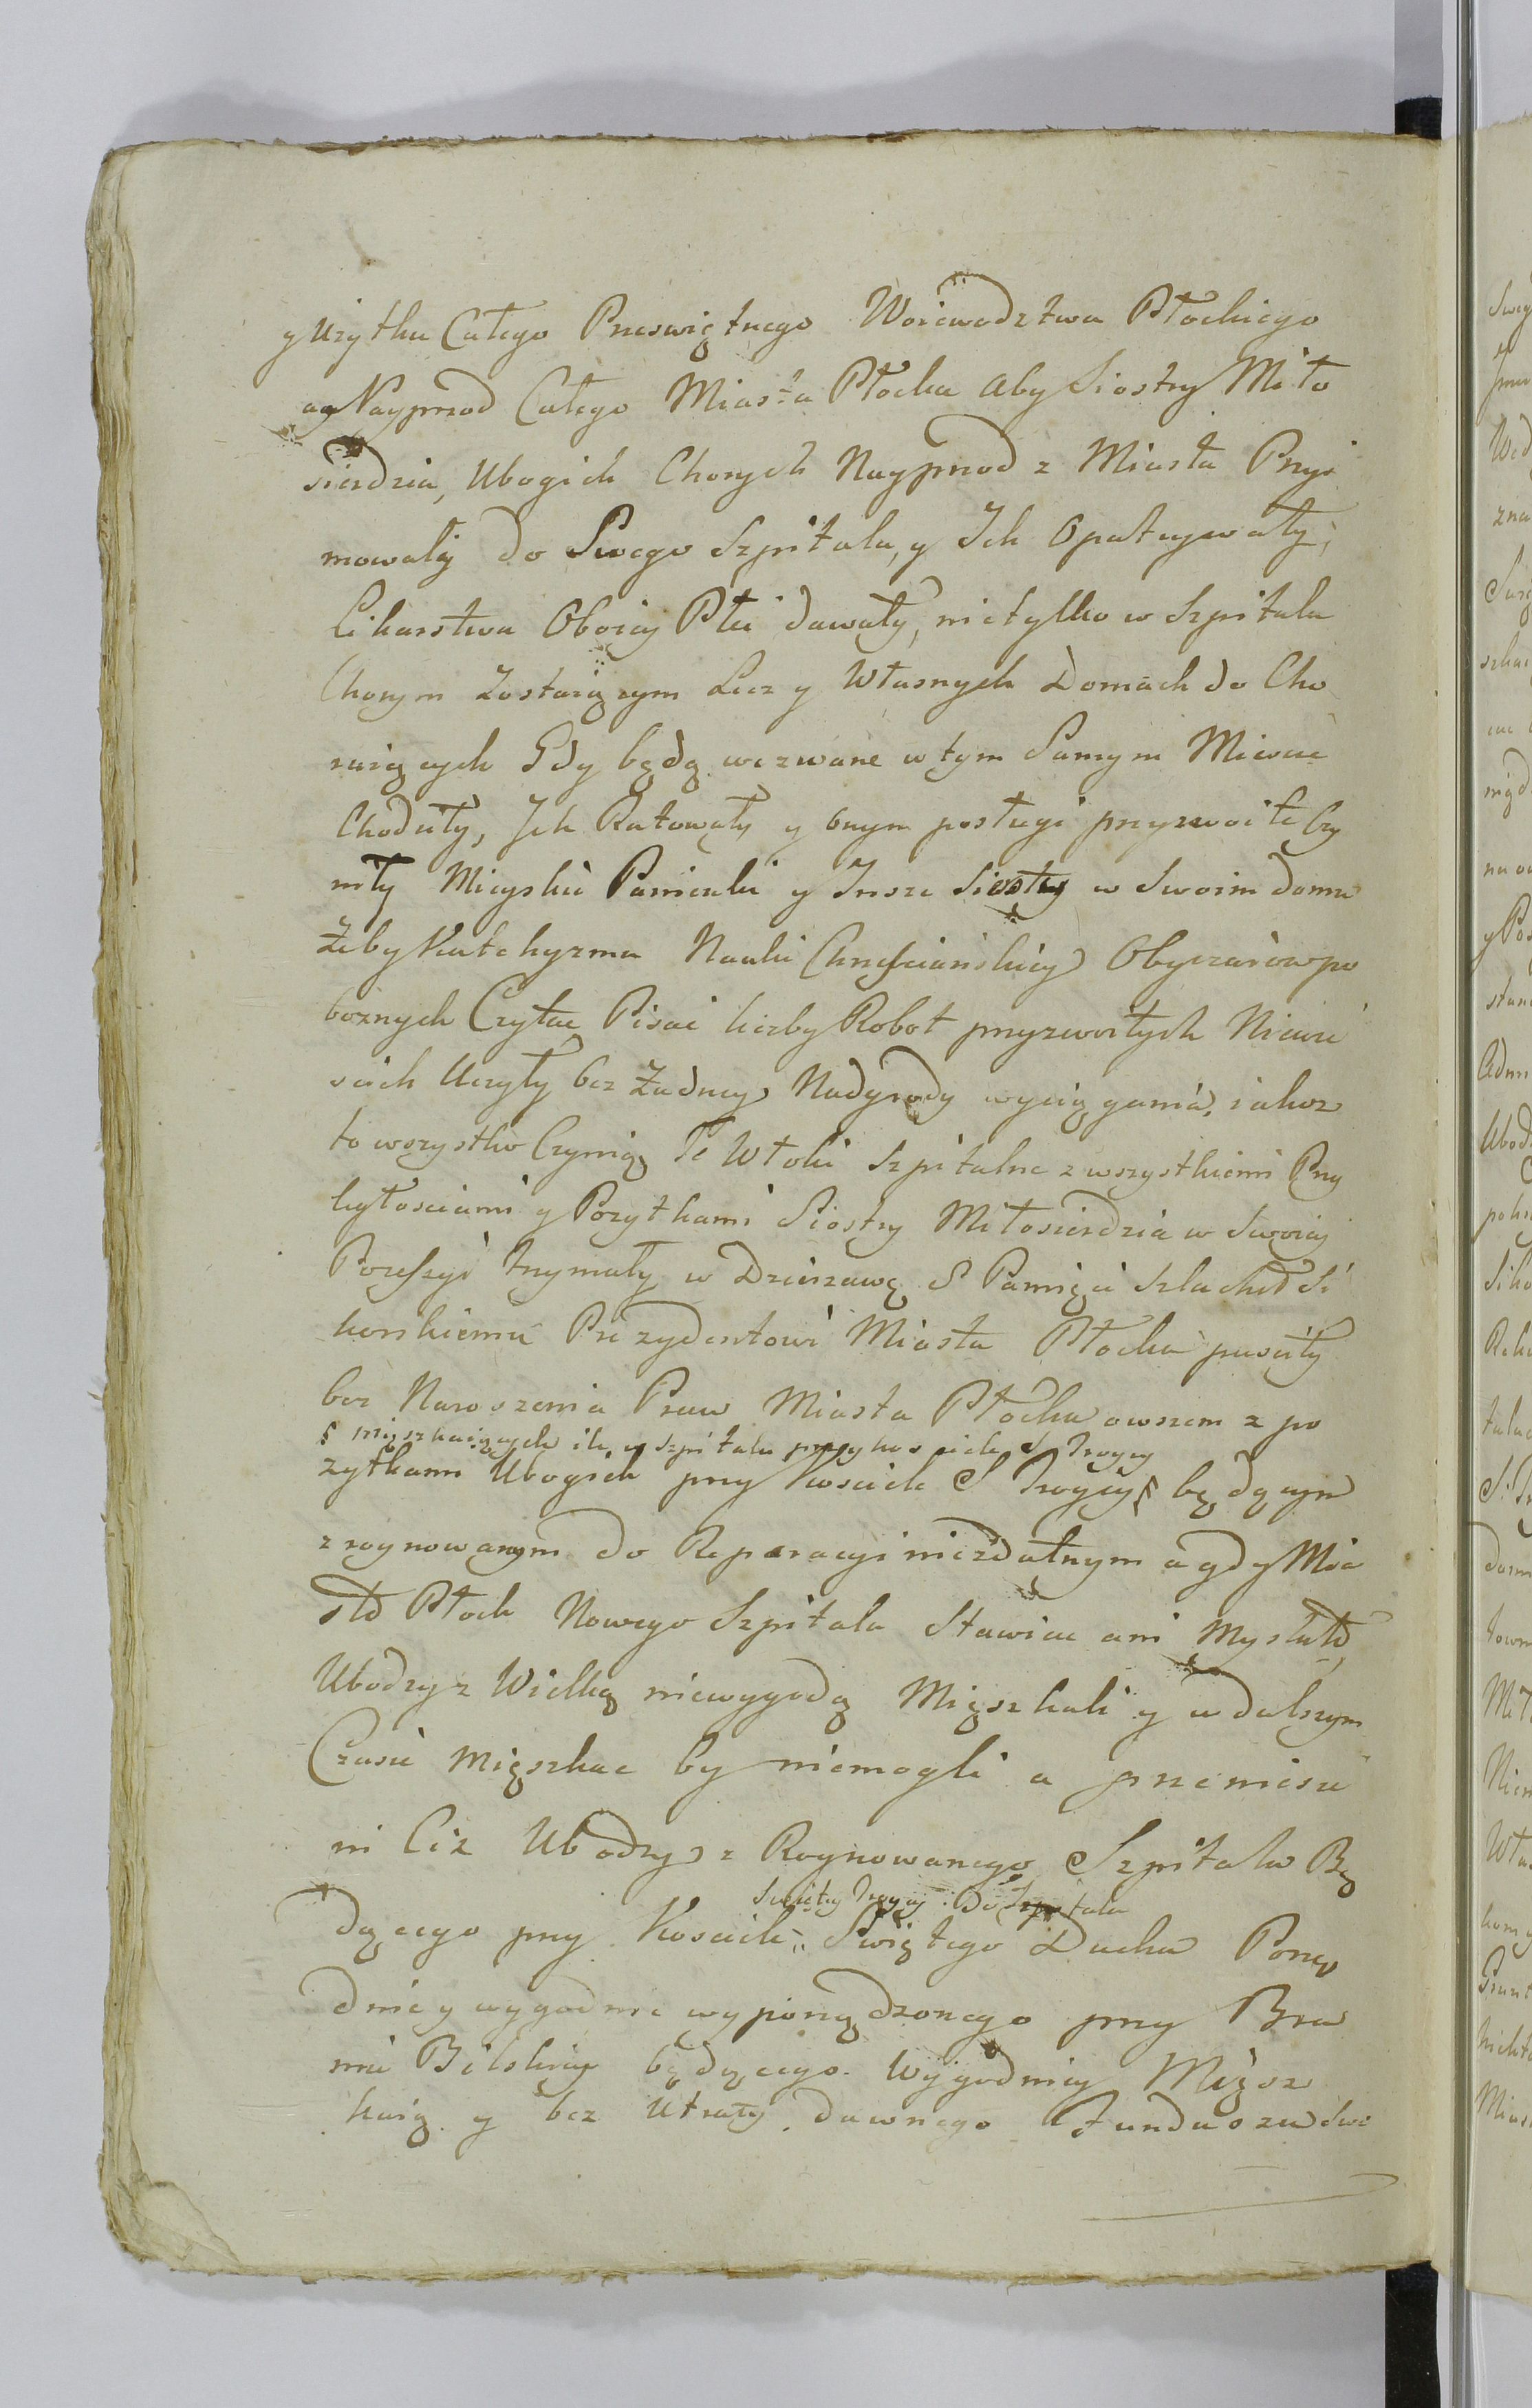 y Uzytku Całego Przeswiętnego Woiewodztwa Płockiego
a Nayprzod Całego Miasta Płocka aby Siostry Miło
sierdzia, Ubogich Chorych Nayprzod z Miasta Przyi
mowały do Swego Szpitala, y Ich Opatrywały,
Likarstwa Oboiey Płci dawały, nietylko w Szpitalu
Chorym Zostaiącym Lecz y Własnych Domach do Cho
ruiących Gdy będą wezwane w tym Samym Miescie
Chodziły, Ich Ratowały y onym posługi przyzwoite Czy
niły Mieyskie Panienki y Insze Siostry w Swoim domu
Żeby Katehyzmu Nauki Chrzesciańskiey Obyczaiow po
boznych Czytac Pisac liczby Robot przyzwoitych Niewie
scich Uczyły bez Żadney Nadgrody wyciągania, iakoz
to wszystko Czynią Te Włoki Szpitalne z wszystkiemi Przy
ległosciami y Pozytkami Siostry Miłosierdzia w Swoiey
Possessyi trzymały w Dzierzawę S Pamięci Szlachet Si
korskiemu Prezydentowi Miasta Płocka pusciły
bez Naroszenia Praw Miasta Płocka owszem z po
§ mięszkaiących ile w Szpitalu przy kosciele S Troycy
zytkami Ubogich przy Kosciele S Troycy § będącym
zroynowanym do Reparacyi niezdatnym a gdy Mia
sto Płock Nowego Szpitala Stawiac ani Myslało,
Ubodzy z Wielką niewygodą Mięszkali y w dalszym
Czasie Mięszkac by niemogli a przeniesie
ni Ciz Ubodzy z Roynowanego Szpitala Bę
Swiętey Troycy Do Szpitala
dącego przy Kosciele Swiętego Ducha Porzą
dnie y wygodnie wyporządzonego przy Bra
mie Bilskiey będącego. Wygodniey Mięsz
kaią y bez Utraty dawnego Funduszu Swe